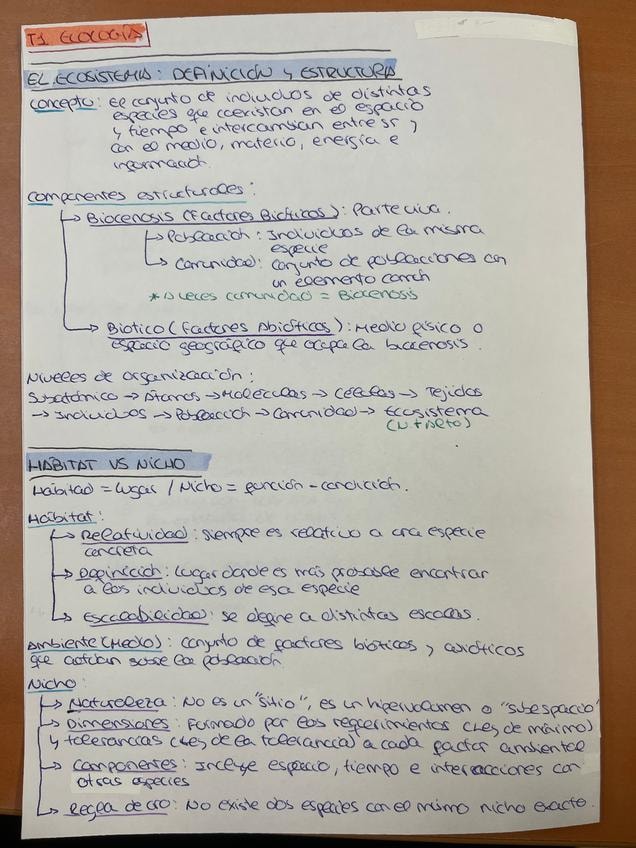 T1. ECOLOGÍA
EL ECOSISTEMA: DEFINICIÓN y ESTRUCTURA
Concepto: El conjunto de individuos de distintas
especies que coexistan en el espacio
y tiempo e intercambian entre sí y
con el medio, materia, energía e
información.
Componentes estructurales:
→ Biocenosis (Factores Bióticos): Parte viva.
→ Población: Individuos de la misma
especie
→ Comunidad: Conjunto de poblaciones con
un elemento común
* A veces comunidad = Biocenosis
→ Biotico (Factores Abióticos): Medio físico o
espacio geográfico que ocupa la biocenosis.
Niveles de organización:
Subatómico → Átomos → Moléculas → Células → Tejidos
→ Individuos → Población → Comunidad → Ecosistema
(N + Alto)
HÁBITAT VS NICHO
Hábitad = Lugar / Nicho = función - condición.
Hábitat:
→ Relatividad: siempre es relativo a una especie
concreta
→ Definición: Lugar donde es más probable encontrar
a los individuos de esa especie
→ Escalabilidad: se define a distintas escalas.
Ambiente (Medio): conjunto de factores bióticos y abióticos
que actúan sobre la población
Nicho:
→ Naturaleza: No es un "sitio", es un hipervolumen o "subespacio"
→ Dimensiones: Formado por los requerimientos (Ley de máximo)
y tolerancias (Ley de la tolerancia) a cada factor ambiental
→ Componentes: Incluye espacio, tiempo e interacciones con
otras especies
→ Regla de oro: No existe dos especies con el mismo nicho exacto.